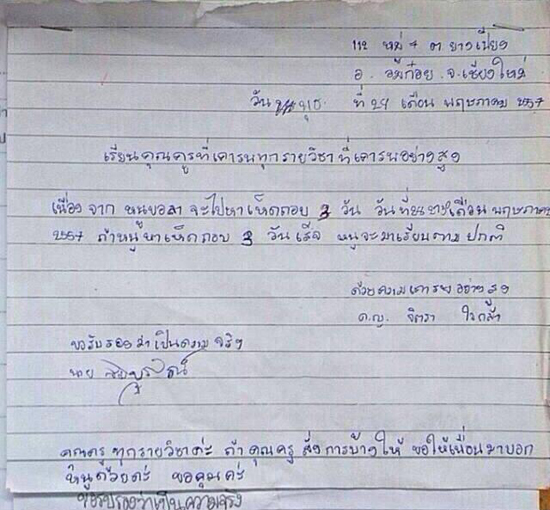 112 หมู่ 4 ต ยางเปียง
อ. อมก๋อย จ.เชียงใหม่
วัน พุธ ที่ 28 เดือน พฤษภาคม 2557
เรียนคุณครูที่เคารพทุกรายวิชาที่เคารพอย่างสูง
เนื่อง จาก หนูขอลา จะไปหาเห็ดถอบ 3 วัน วันที่ เดือน พฤษภาคม
2557 ถ้าหนูหาเห็ดถอบ 3 วันเสร็จ หนูจะมาเรียนตาม ปกติ
ด้วยความเคารพอย่างสูง
ด.ญ. จิตรา ใจกล้า
ขอรับรองว่าเป็นความจริง
นาย
คุณครูทุกรายวิชาค่ะ ถ้าคุณครู สั่งการบ้างให้ ขอให้เพื่อนมาบอก
หนูด้วยค่ะ ขอคุณค่ะ
ขอรับรองว่าเป็นความจริง